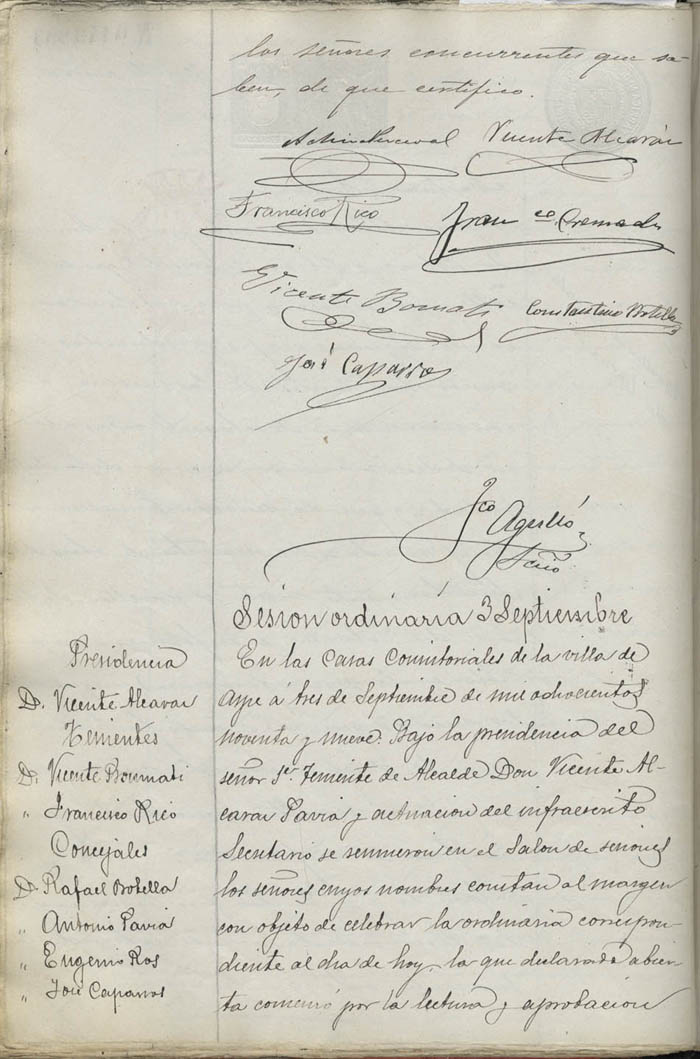 los señores concurrentes que sa-
ben, de que certifico.
Vicente Alcaraz
Francisco Rico
Fran co. Cremades
Vicente Bornati
Constantino Botella
José Caparros
Fco Agulló
Srio
Sesion ordinaria 3 Septiembre
Presidencia
D. Vicente Alcaraz
Tenientes
D. Vicente Bornati
" Francisco Rico
Concejales
D. Rafael Botella
" Antonio Pavia
" Eugenio Ros
" José Caparros
En las Casas Consistoriales de la villa de
Aspe á tres de Septiembre de mil ochocientos
noventa y nueve. Bajo la presidencia del
señor 1er. Teniente de Alcalde Don Vicente Al-
caraz Pavia y actuacion del infraescrito
Secretario se reunieron en el Salon de sesiones
los señores cuyos nombres constan al margen
con objeto de celebrar la ordinaria correspon-
diente al dia de hoy, la que declarada abier-
ta comenzó por la lectura y aprobacion